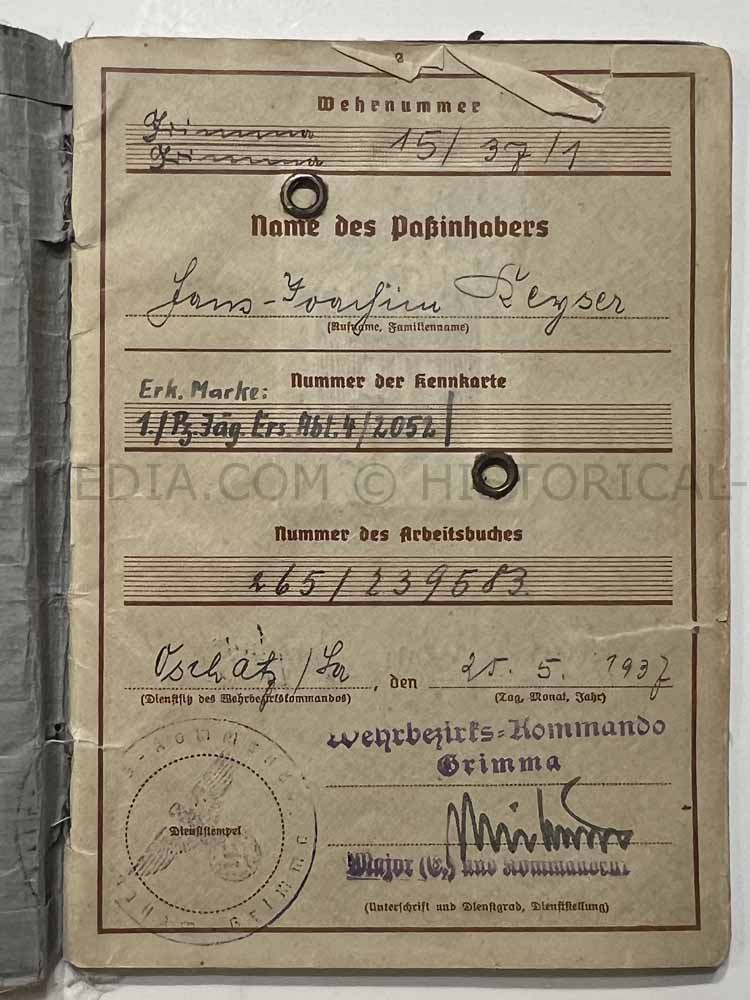 Wehrnummer
Grimma
Grimma 15/37/1
Name des Paßinhabers
Hans-Joachim Keyser
(Rufname, Familienname)
Nummer der Kennkarte
Erk. Marke:
1./Pz.Jäg. Ers. Abt. 4/2052
MEDIA.COM © HISTORICAL-
Nummer des Arbeitsbuches
265/239583.
Oschatz/Sa, den 25. 5. 1937
(Dienstsitz des Wehrbezirkskommandos) (Tag, Monat, Jahr)
Wehrbezirks-Kommando
Grimma
Dienststempel
GRIMMA
Major (E.) und Kommandeur
(Unterschrift und Dienstgrad, Dienststellung)